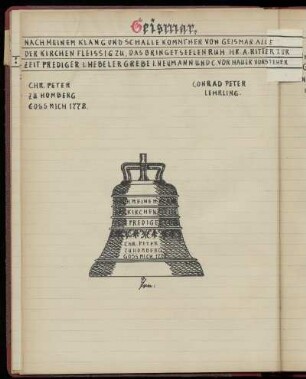 Geismar,
NACH MEINEM KLANG UND SCHALLE KOMMT HER VON GEISMAR ALLE
DER KIRCHEN FLEISSIG ZU, DAS BRINGET SEELEN RUH HR. A. RITTER ZUR
ZEIT PREDIGER I. HEBELER GREBE I. NEUMANN UND C. VON HAUSE VORSTEHER
CHR. PETER
ZU HOMBERG
GOSS MICH 1778.
CONRAD PETER
LEHRLING.
H MEINEM
KIRCHEN
PREDIGE
CHR. PETER
ZU HOMBERG
GOSS MICH 177